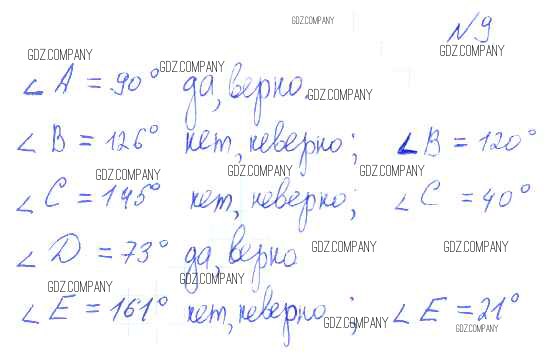 GDZ.COMPANY
№9
GDZ.COMPANY GDZ.COMPANY
GDZ.COMPANY
∠A = 90° да, верно.
GDZ.COMPANY
∠B = 126° нет, неверно; ∠B = 120°
GDZ.COMPANY GDZ.COMPANY GDZ.COMPANY
∠C = 145° нет, неверно; ∠C = 40°
∠D = 73° да, верно
GDZ.COMPANY GDZ.COMPANY
GDZ.COMPANY GDZ.COMPANY
∠E = 161° нет, неверно; ∠E = 21°
GDZ.COMPANY GDZ.COMPANY